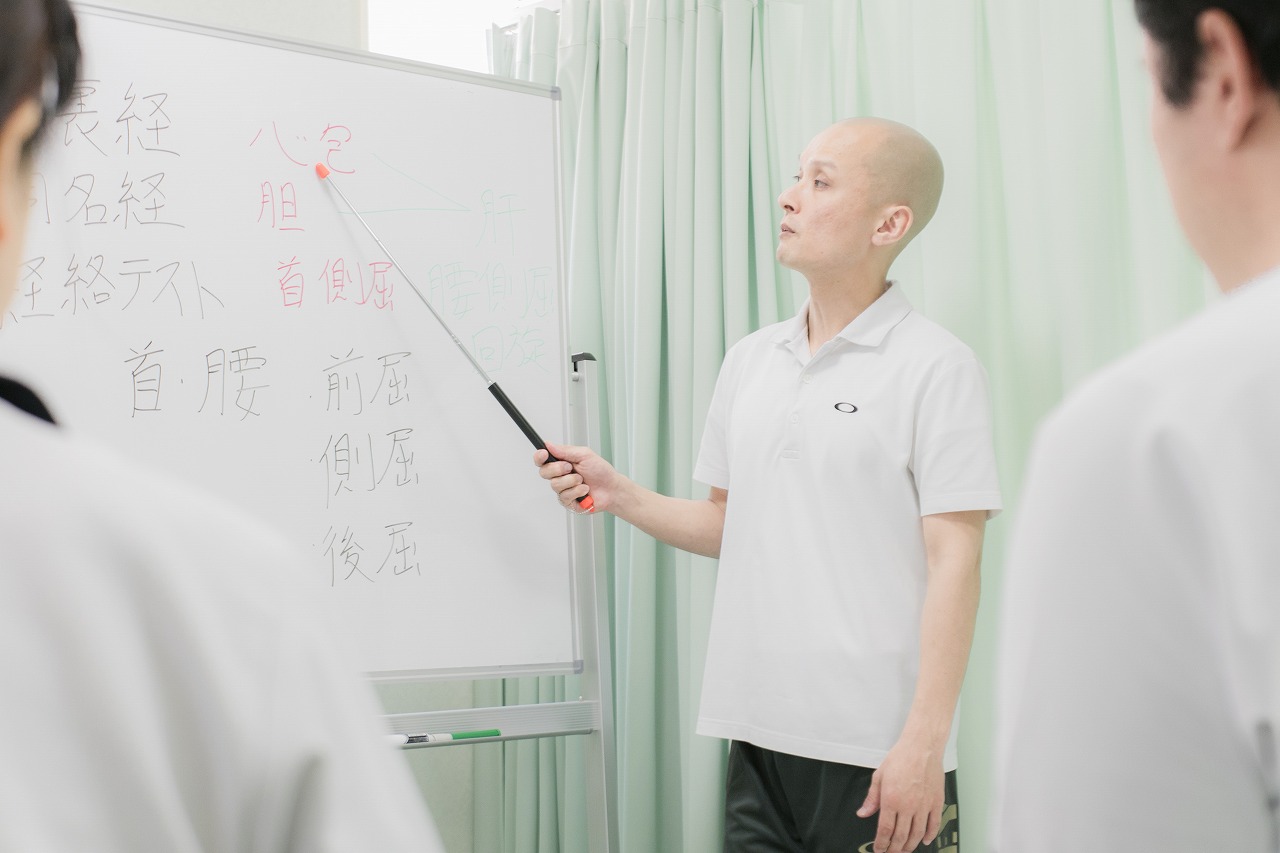 裏経 心包
同名経 胆 肝
経絡テスト 首側屈 腰側屈
回旋
首・腰 ・前屈
・側屈
・後屈